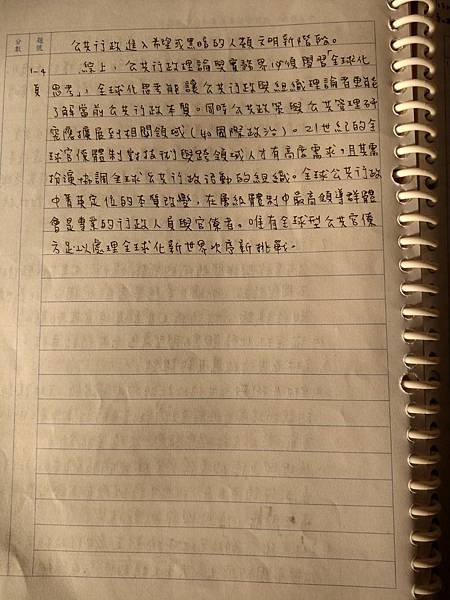 題號
分數
公共行政進入希望或黑暗的人類文明新階段。
1-4頁
綜上，公共行政理論與實務界必須學習「全球化
思考」，全球化思考能讓公共行政與組織理論者更能
了解當前公共行政本質。同時公共政策與公共管理研
究應擴展到相關領域（如國際政治）。21世紀的全
球官僚體制對技術與跨領域人才有高度需求，且其需
扮演協調全球公共行政活動的組織。全球公共行政
中菁英定位的本質改變，在層級體制中最高領導群體
會是專業的行政人員與官僚者。唯有全球型公共官僚
方足以處理全球化新世界次序新挑戰。